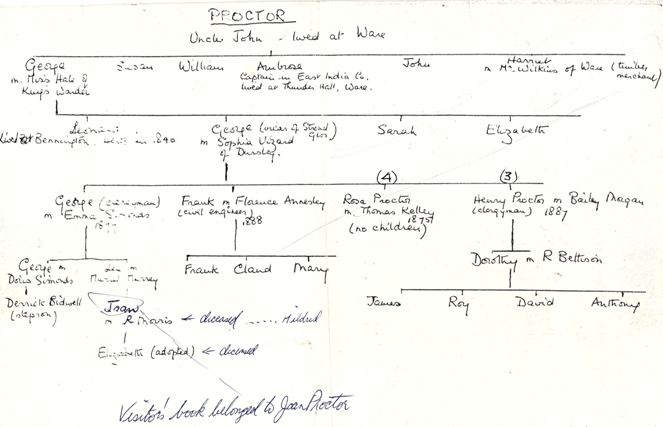 PROCTOR
Uncle John - lived at Ware
George Susan William Ambrose John Harriet
m. Miss Hale of Captain in East India Co. m Mr Wilkins of Ware (timber
Kings Warden lived at Thunder Hall, Ware. merchant)
George (vicar of Stroud Sarah Elizabeth
Lived at Bennington, in 1840 m Sophia Vizard Glos)
of Dursley.
(4) (3)
George (clergyman) Frank m Florence Annesley Rose Proctor Henry Proctor m Bailey Magan
m Emma Simonds (civil engineer) 1888 m. Thomas Kelley (clergyman) 1887
(no children)
George m m Frank Claud Mary Dorothy m R Bettison
Doris Simonds Murrey
Derrick Bidwell Joan James Roy David Anthony
(stepson) m R Morris ← deceased ..... Mildred
Elizabeth (adopted) ← deceased
Visitor's book belonged to Joan Proctor